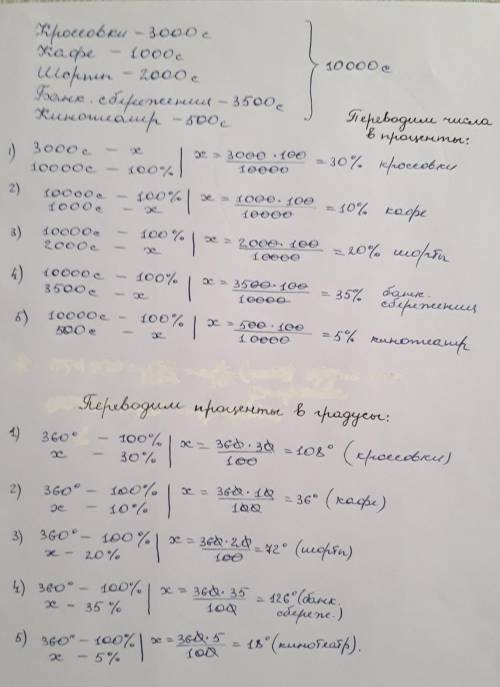 Кроссовки – 3000с
Кафе – 1000с
Шорты – 2000с
Банк. сбережения – 3500с
Кинотеатр – 500с
10000с
Переводим числа
в проценты:
1) 3000с – x | x = 3000·100/10000 = 30% кроссовки
10000с – 100%
2) 10000с – 100% | x = 1000·100/10000 = 10% кафе
1000с – x
3) 10000с – 100% | x = 2000·100/10000 = 20% шорты
2000с – x
4) 10000с – 100% | x = 3500·100/10000 = 35% банк. сбережения
3500с – x
5) 10000с – 100% | x = 500·100/10000 = 5% кинотеатр
500с – x
Переводим проценты в градусы:
1) 360° – 100% | x = 360·30/100 = 108° (кроссовки)
x – 30%
2) 360° – 100% | x = 360·10/100 = 36° (кафе)
x – 10%
3) 360° – 100% | x = 360·20/100 = 72° (шорты)
x – 20%
4) 360° – 100% | x = 360·35/100 = 126° (банк. сбереж.)
x – 35%
5) 360° – 100% | x = 360·5/100 = 18° (кинотеатр).
x – 5%